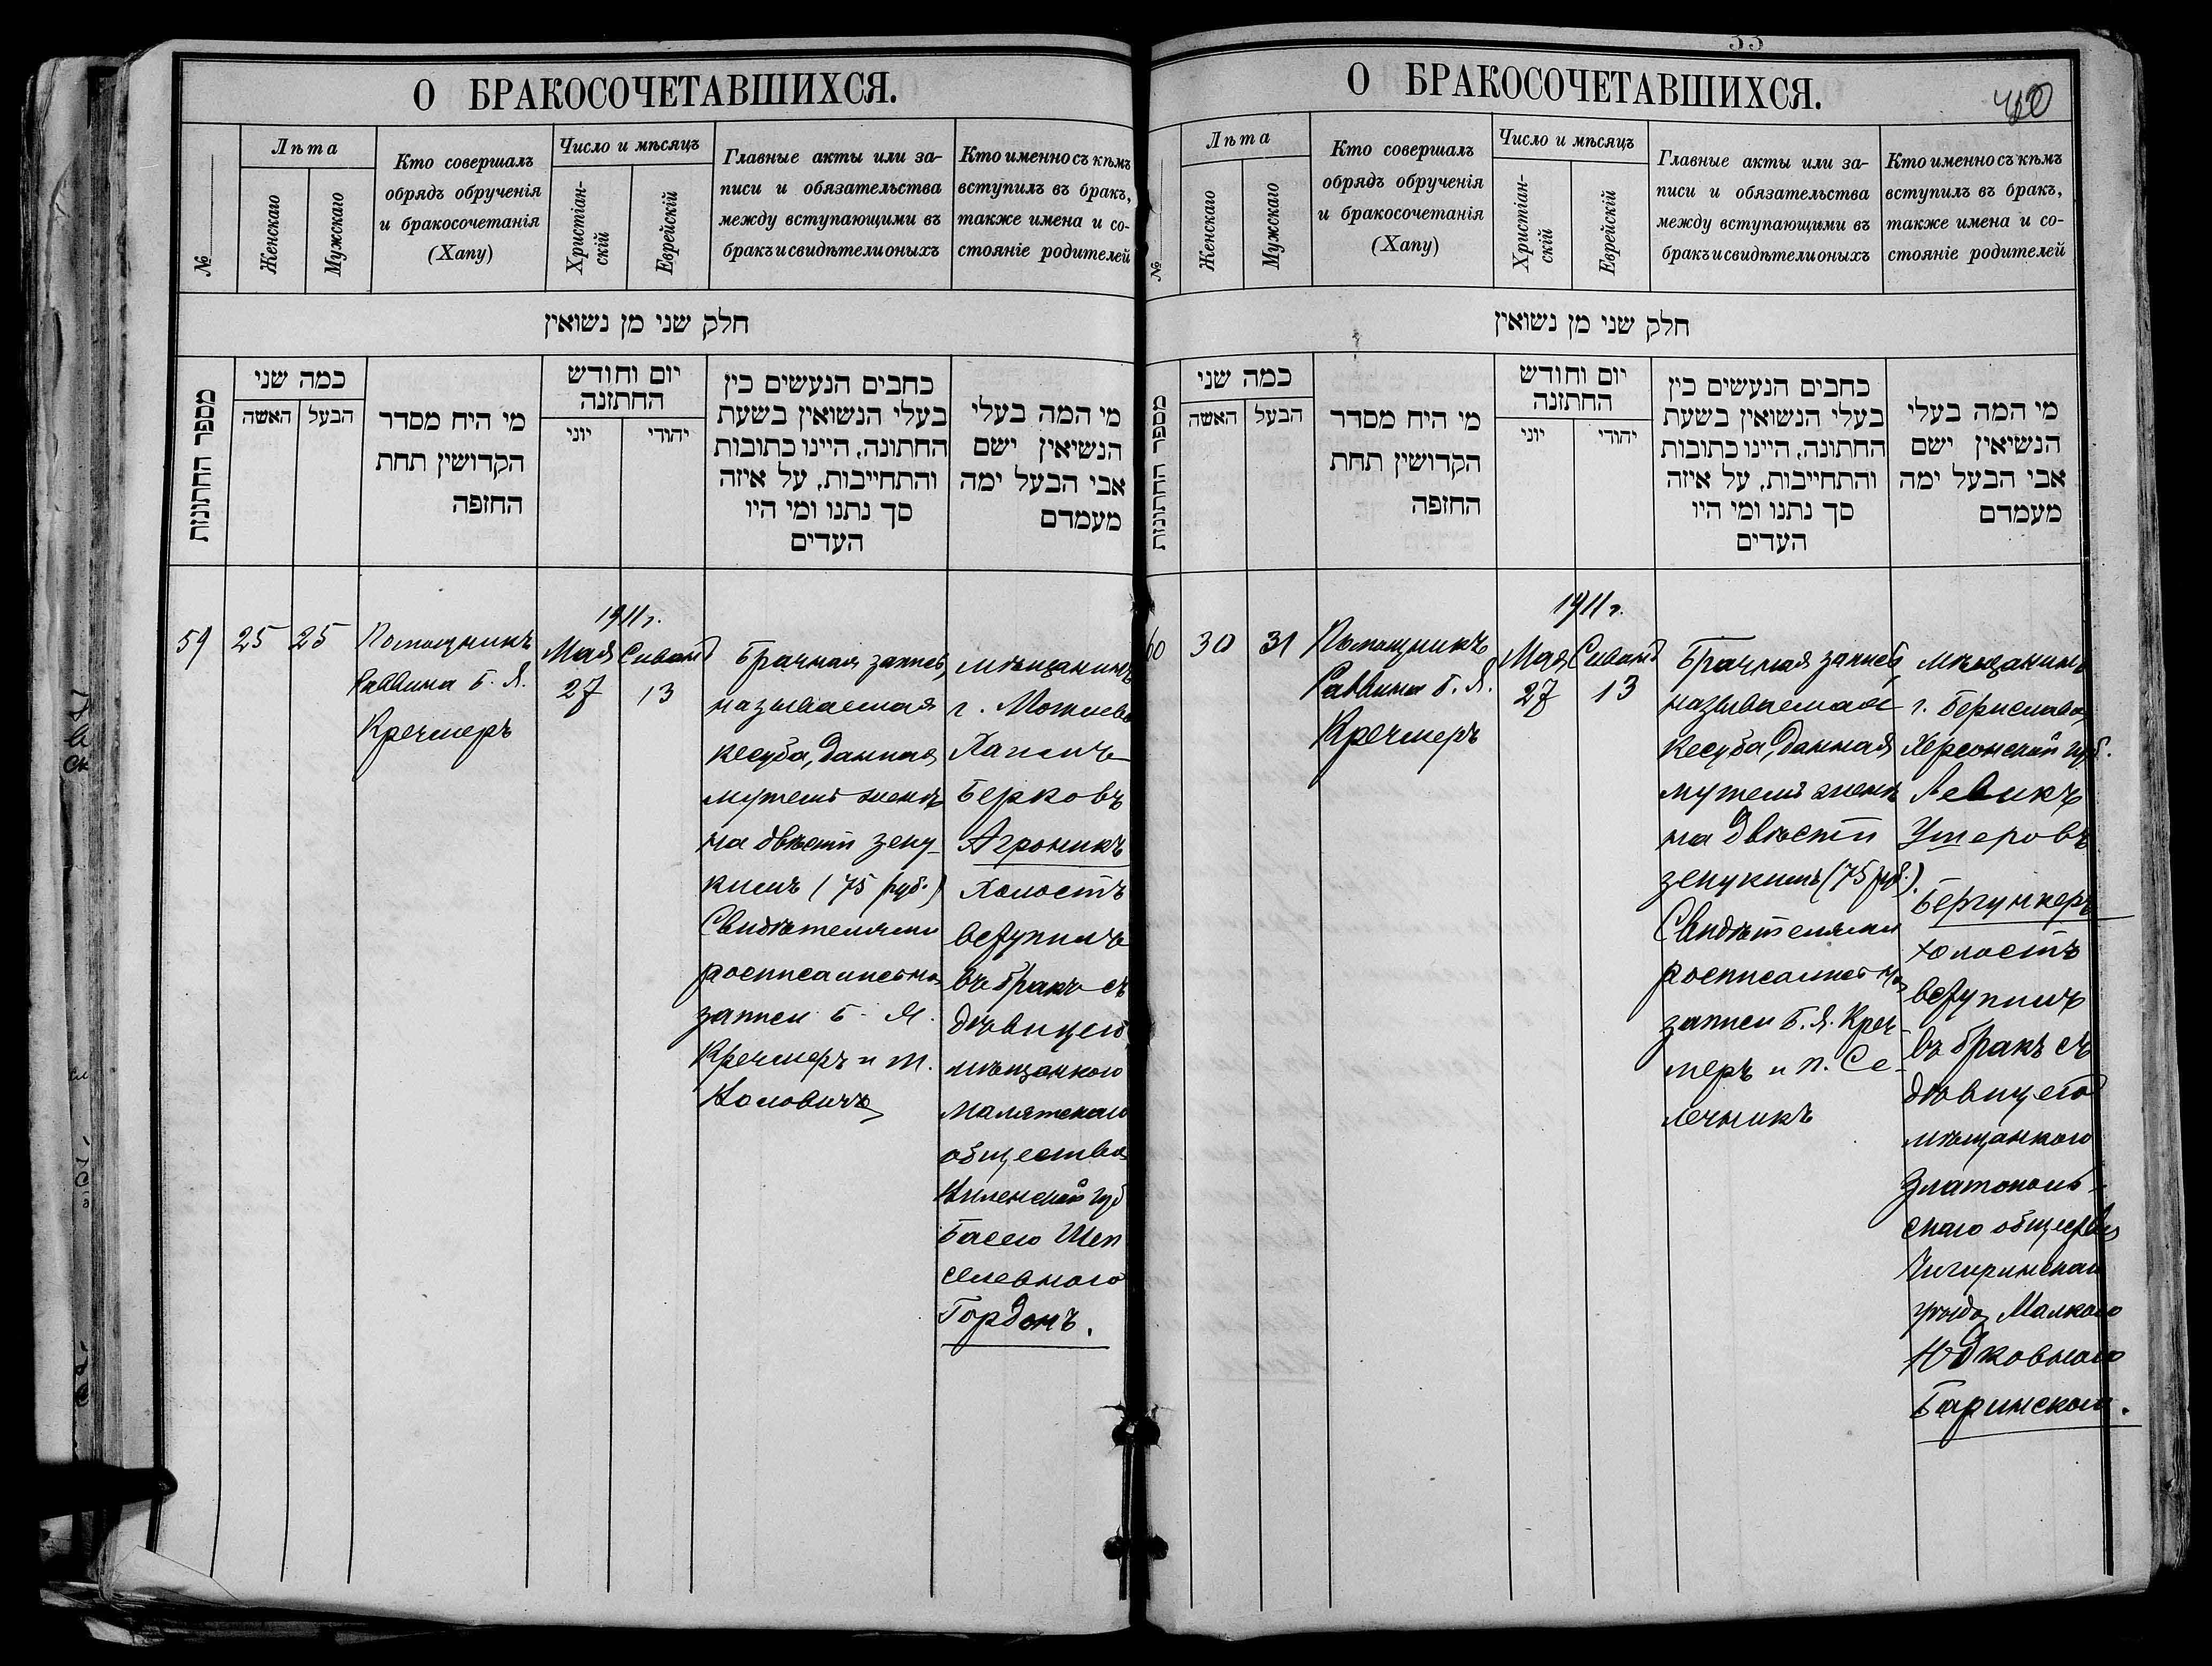 О БРАКОСОЧЕТАВШИХСЯ.
№
Лѣта
Женскаго
Мужскаго
Кто совершалъ
обрядъ обрученія
и бракосочетанія
(Хапу)
Число и мѣсяцъ
Христіан-
скій
Еврейскій
Главные акты или за-
писи и обязательства
между вступающими въ
бракъ и свидѣтели оныхъ
Кто именно съ кѣмъ
вступилъ въ бракъ,
также имена и со-
стояніе родителей
חלק שני מן נשואין
מספר החתונות
כמה שני
האשה
הבעל
מי היח מסדר
הקדושין תחת
החופה
יום וחודש
החתונה
יוני
יהודי
כחבים הנעשים כין
בעלי הנשואין בשעת
החתונה, היינו כתובות
והתחייבות, על איזה
סך נתנו ומי היו
העדים
מי המה בעלי
הנשיאין ישם
אבי הבעל ימה
מעמדם
59
25
25
Помощникъ
Раввина Б. Я.
Кречмеръ
1911 г.
Мая
27
Сивана
13
Брачная запись,
называемая
кесуба, данная
мужемъ женѣ
на двѣсти зеку-
кимъ (75 руб.)
Свидѣтелями
росписались на
записи Б. Я.
Кречмеръ и М.
мѣщанинъ
г.
Хаимъ
Берковъ
Агроникъ
холостъ
вступилъ
въ бракъ съ
дѣвицею
мѣщанкою
Малятскаго
общества
Виленской губ
Басею Шеп
селевною
Гордонъ.
33
О БРАКОСОЧЕТАВШИХСЯ.
40
№
Лѣта
Женскаго
Мужскаго
Кто совершалъ
обрядъ обрученія
и бракосочетанія
(Хапу)
Число и мѣсяцъ
Христіан-
скій
Еврейскій
Главные акты или за-
писи и обязательства
между вступающими въ
бракъ и свидѣтели оныхъ
Кто именно съ кѣмъ
вступилъ въ бракъ,
также имена и со-
стояніе родителей
חלק שני מן נשואין
מספר החתונות
כמה שני
האשה
הבעל
מי היח מסדר
הקדושין תחת
החופה
יום וחודש
החתונה
יוני
יהודי
כחבים הנעשים כין
בעלי הנשואין בשעת
החתונה, היינו כתובות
והתחייבות, על איזה
סך נתנו ומי היו
העדים
מי המה בעלי
הנשיאין ישם
אבי הבעל ימה
מעמדם
60
30
31
Помощникъ
Раввина Б. Я.
Кречмеръ
1911 г.
Мая
27
Сивана
13
Брачная запись,
называемая
кесуба, данная
мужемъ женѣ
на двѣсти
зекукимъ (75 руб.).
Свидѣтелями
росписались на
записи Б. Я. Креч-
меръ и П. Се-
лечникъ
мѣщанинъ
г. Берислава
Херсонской губ.
Левикъ
Ушеровъ
Бергункеръ
холостъ
вступилъ
въ бракъ съ
дѣвицею
мѣщанкою
Златополь-
скаго общества
Чигиринскаго
уѣзда Малкою
Юдковною
Баринскою.